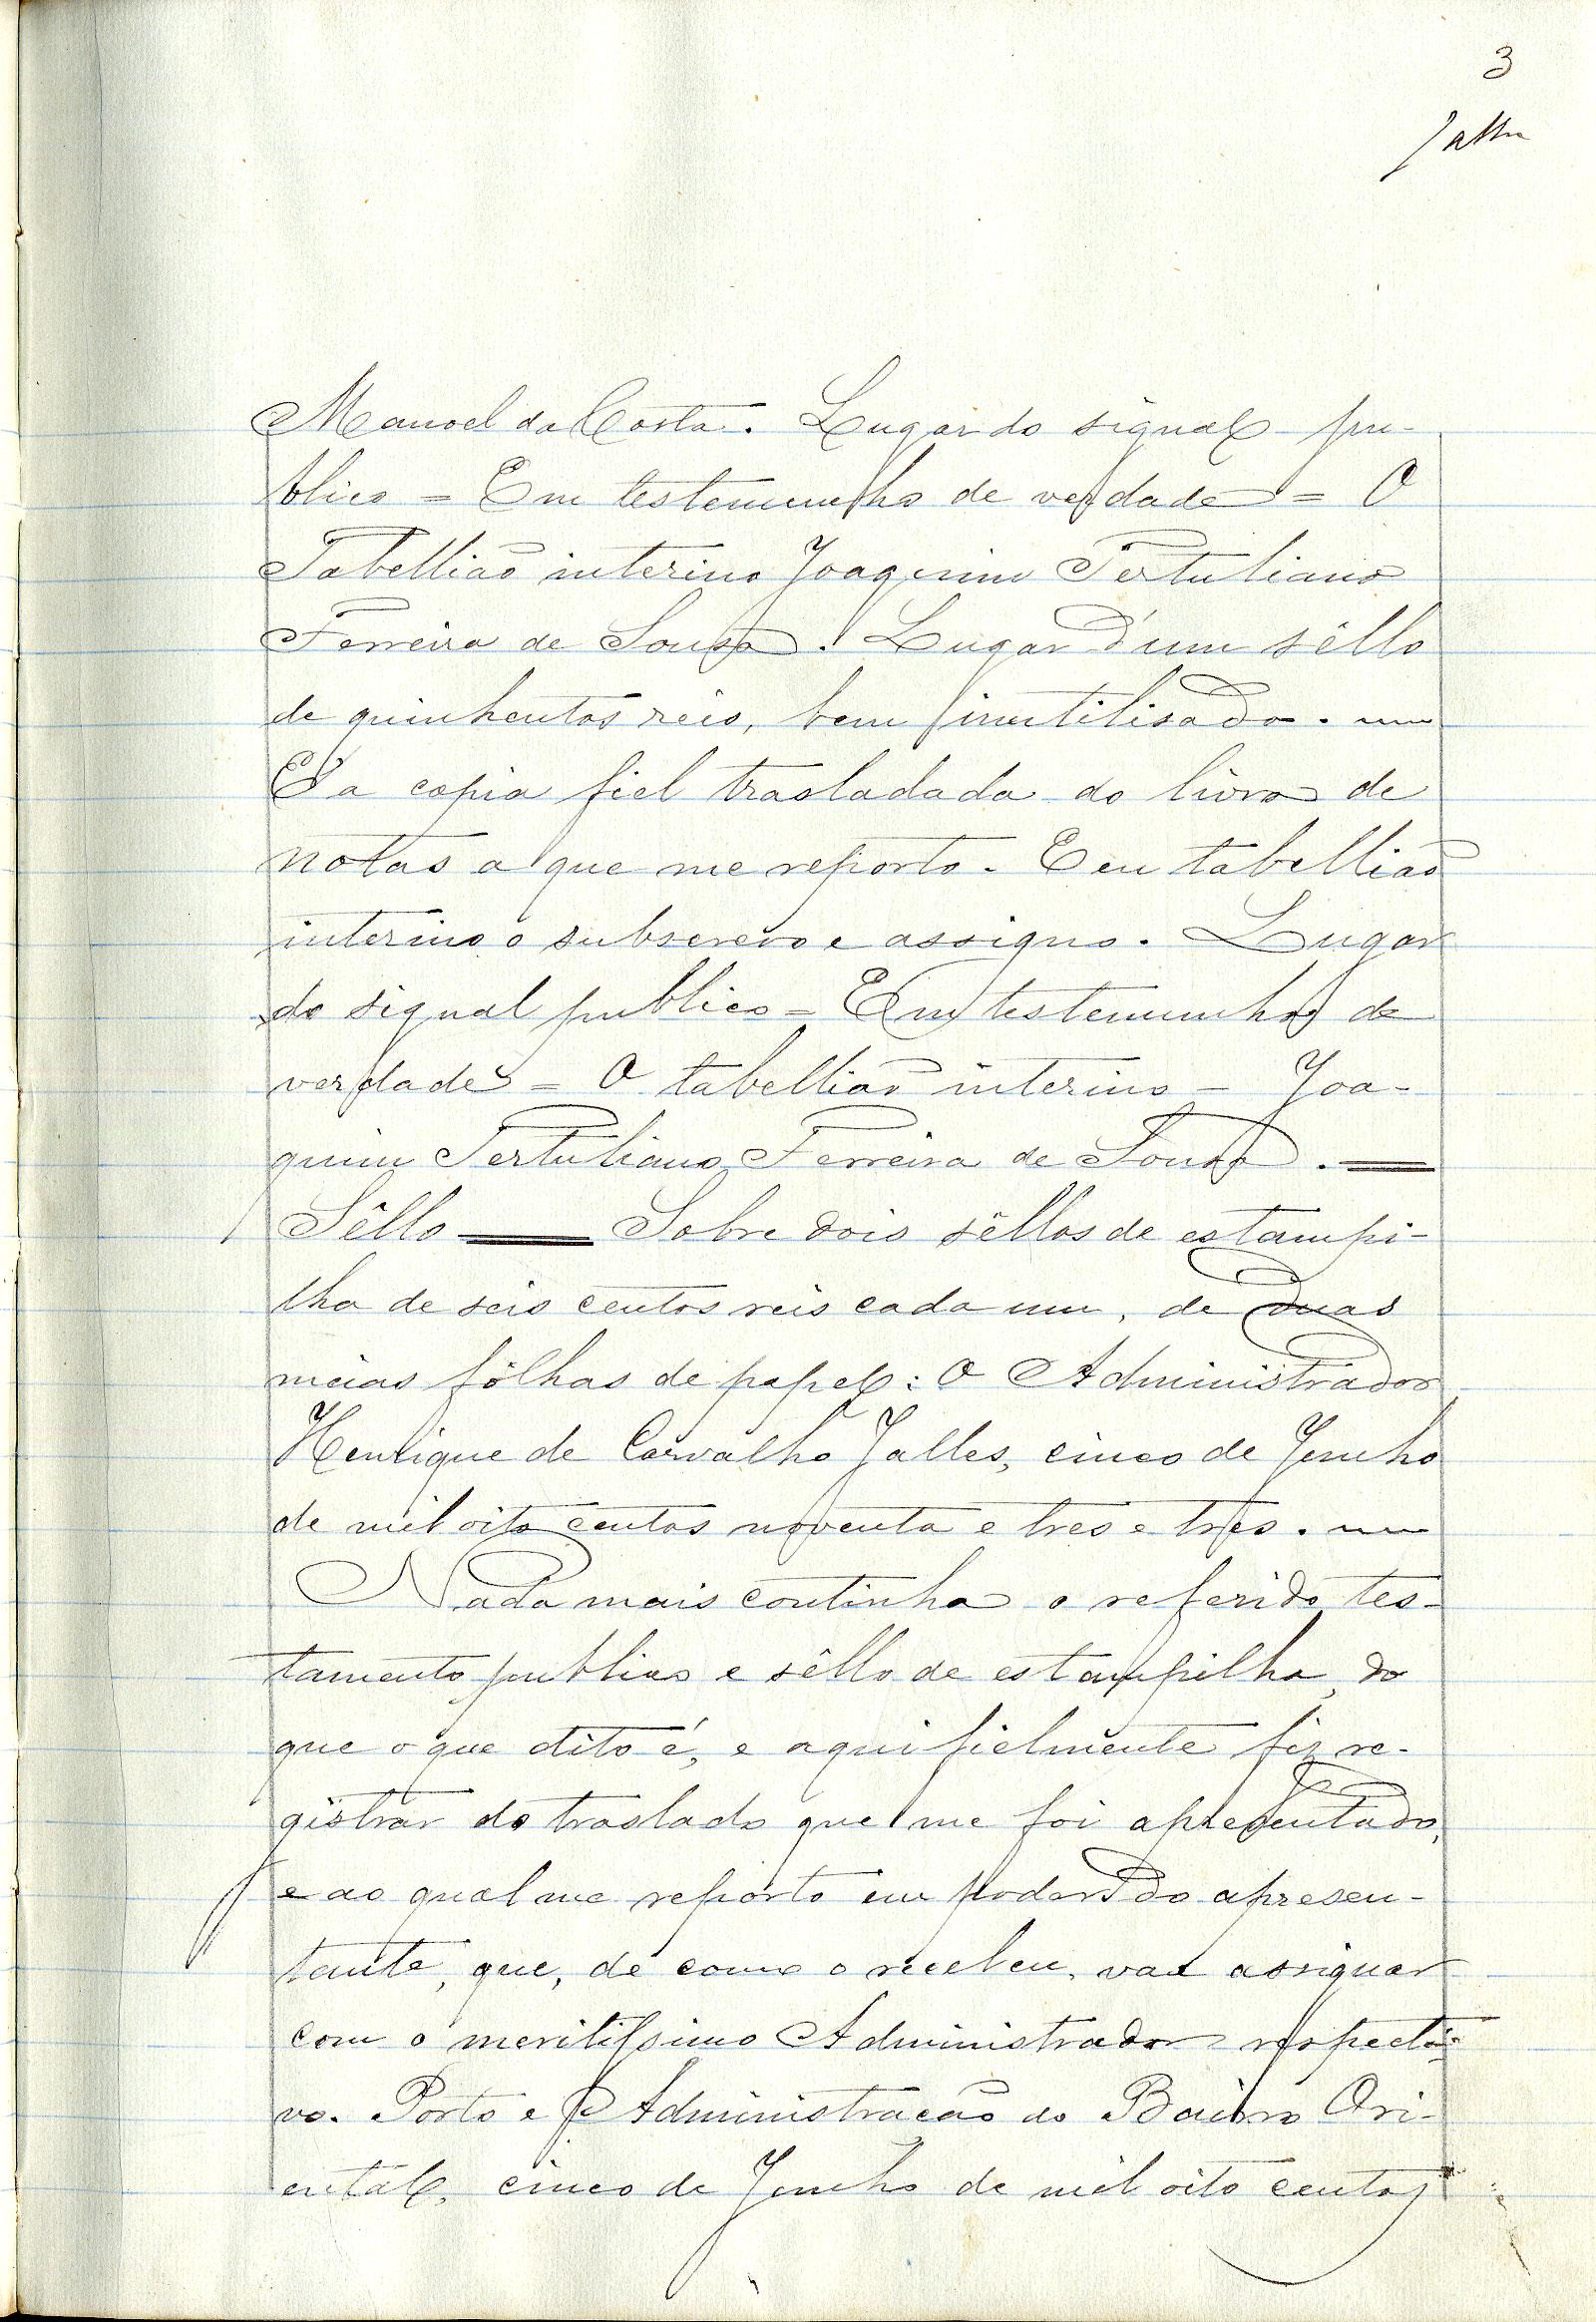 3
Jalles
Manoel da Costa. Lugar do signal pu-
blico = Em testemunho de verdade = O
Tabellião interino Joaquim Tertuliano
Ferreira de Sousa. Lugar d'um sêllo
de quinhentos réis, bem inutilisado.
E' a copia fiel trasladada do livro de
notas a que me reporto. E eu tabellião
interino o subscrevo e assigno. Lugar
do signal publico = Em testemunho de
verdade = O tabellião interino = Joa-
quim Tertuliano Ferreira de Sousa.
Sêllo Sobre dois sêllos de estampi-
lha de seis centos reis cada um, de duas
meias fôlhas de papel: O Administrador
Henrique de Carvalho Jalles, cinco de Junho
de mil oito centos noventa e tres e tres.
Nada mais continha o referido tes-
tamento publico e sêllo de estampilha, do
que o que dito é, e aqui fielmente fiz re-
gistrar do traslado que me foi apresentado,
e ao qual me reporto em poder do apresen-
tante, que, de como o recebeu, vae assignar
com o meritissimo Administrador respecti-
vo. Porto e Administração do Bairro Ori-
ental, cinco de Junho de mil oito centos